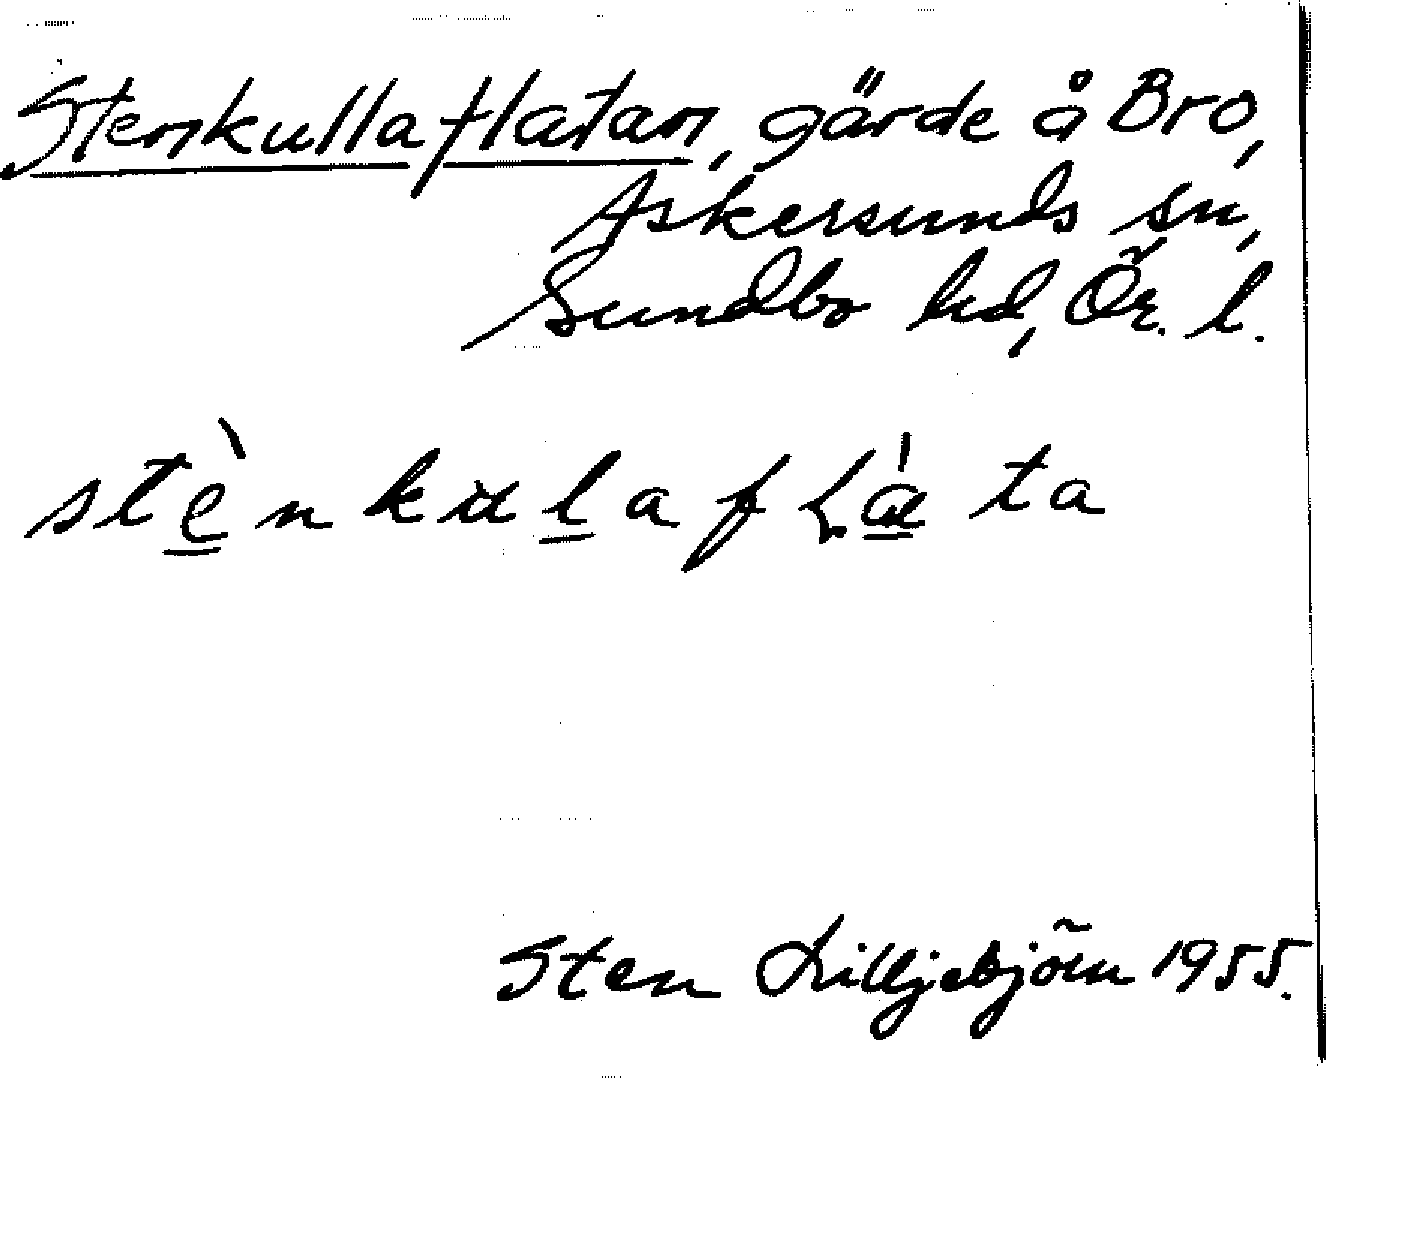 Stenkullaflatan, gärde å Bro,
Askersunds sn,
Sundbo hd, Ör. l.
stènkulaflàta
Sten Lilljebjörn 1955.